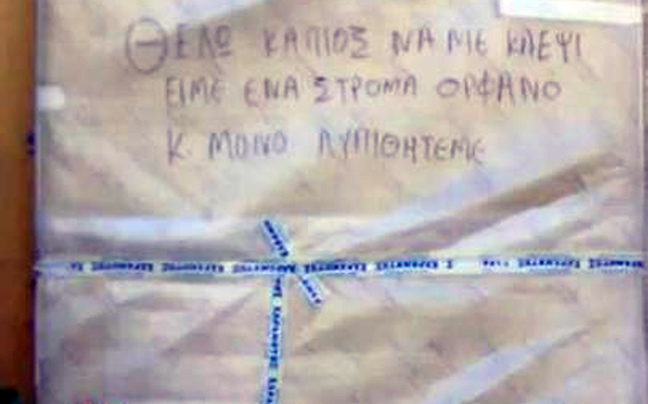 ΘΕΛΩ ΚΑΠΙΟΣ ΝΑ ΜΕ ΚΛΕΨΙ
ΕΙΜΕ ΕΝΑ ΣΤΡΟΜΑ ΟΡΦΑΝΟ
Κ ΜΟΝΟ ΛΥΠΙΘΗΤΕΜΕ